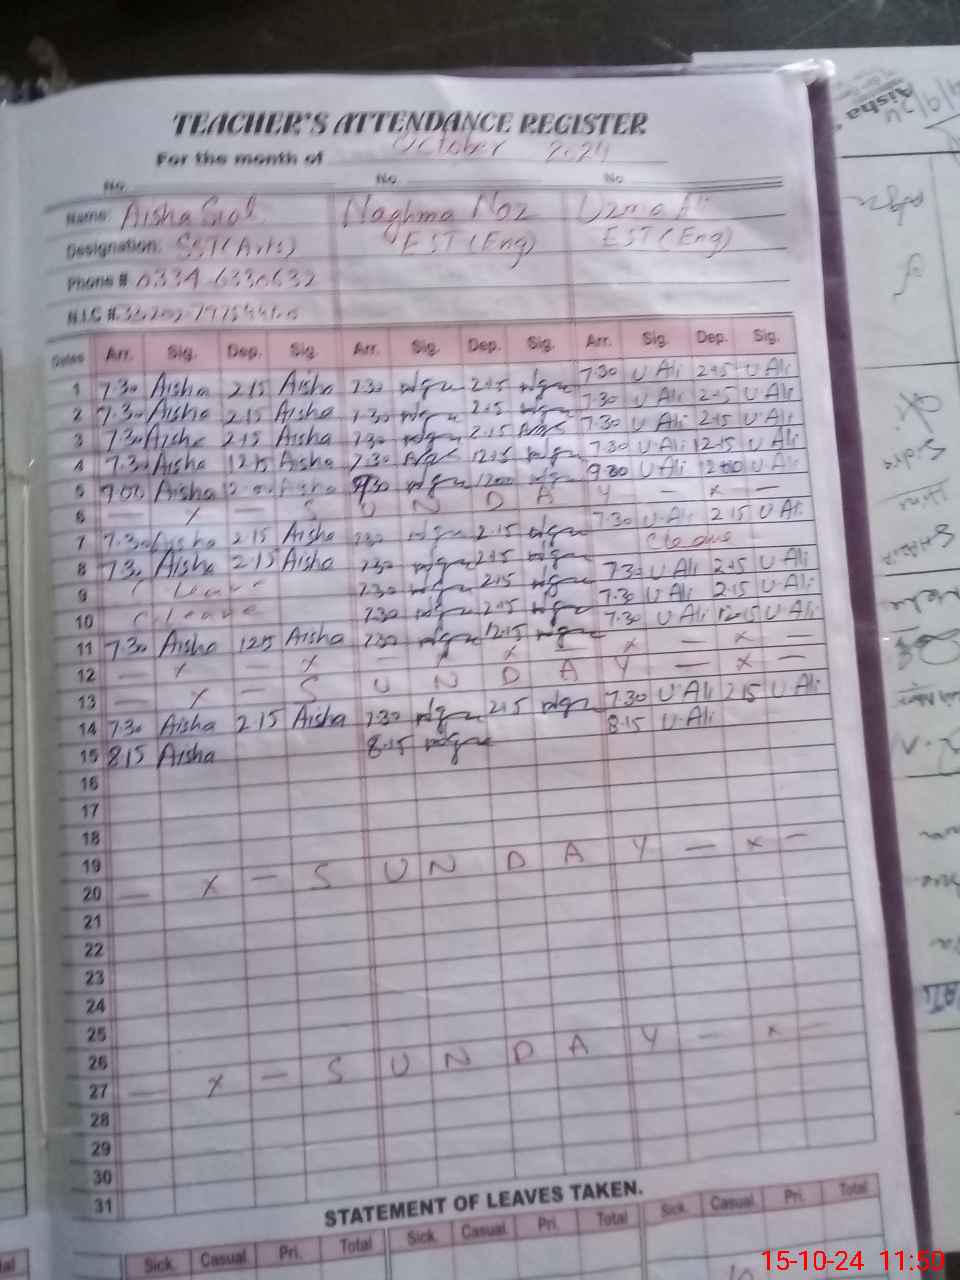 TEACHER'S ATTENDANCE REGISTER
For the month of October 2024
No. No. No.
Name: Aisha Sial Naghma Noz Uzma Ali
Designation: SST (Arts) EST (Eng) EST (Eng)
Phone # 0334-6330632
N.I.C #
Dates Arr. Sig. Dep. Sig. Arr. Sig. Dep. Sig. Arr. Sig. Dep. Sig.
1 7.30 Aisha 2.15 Aisha 7.30 2.15 7.30 U Ali 2.15 U Ali
2 7.30 Aisha 2.15 Aisha 7.30 2.15 7.30 U Ali 2.15 U Ali
3 7.30 Aisha 2.15 Aisha 7.30 2.15 7.30 U Ali 2.15 U Ali
4 7.30 Aisha 12.15 Aisha 7.30 12.15 7.30 U Ali 12.15 U Ali
5 9.00 Aisha 12.00 Aisha 1200 9.00 U Ali U Ali
6 — x — S U N D A Y — x —
7 7.30 Aisha 2.15 Aisha 7.30 2.15 7.30 U.Ali 2.15 U Ali
8 7.30 Aisha 2.15 Aisha 7.30 2.15 C leave
9 C leave 7.30 2.15 7.30 U Ali 2.15 U Ali
10 C leave 7.30 2.15 7.30 U Ali 2.15 U Ali
11 7.30 Aisha 12.15 Aisha 7.30 12.15 7.30 U Ali 12.15 U Ali
12 — x — x — x — x — x — x —
13 — x — S U N D A Y — x —
14 7.30 Aisha 2.15 Aisha 7.30 2.15 7.30 U.Ali 2.15 U Ali
15 8.15 Aisha 8.15 8.15 U.Ali
16
17
18
19
20 — x — S U N D A Y — x —
21
22
23
24
25
26
27 — x — S U N D A Y — x —
28
29
30
31
STATEMENT OF LEAVES TAKEN.
Sick. Casual. Pri. Total Sick. Casual. Pri. Total Sick. Casual. Pri. Total
10
15-10-24 11:50
Aisha
Sidra